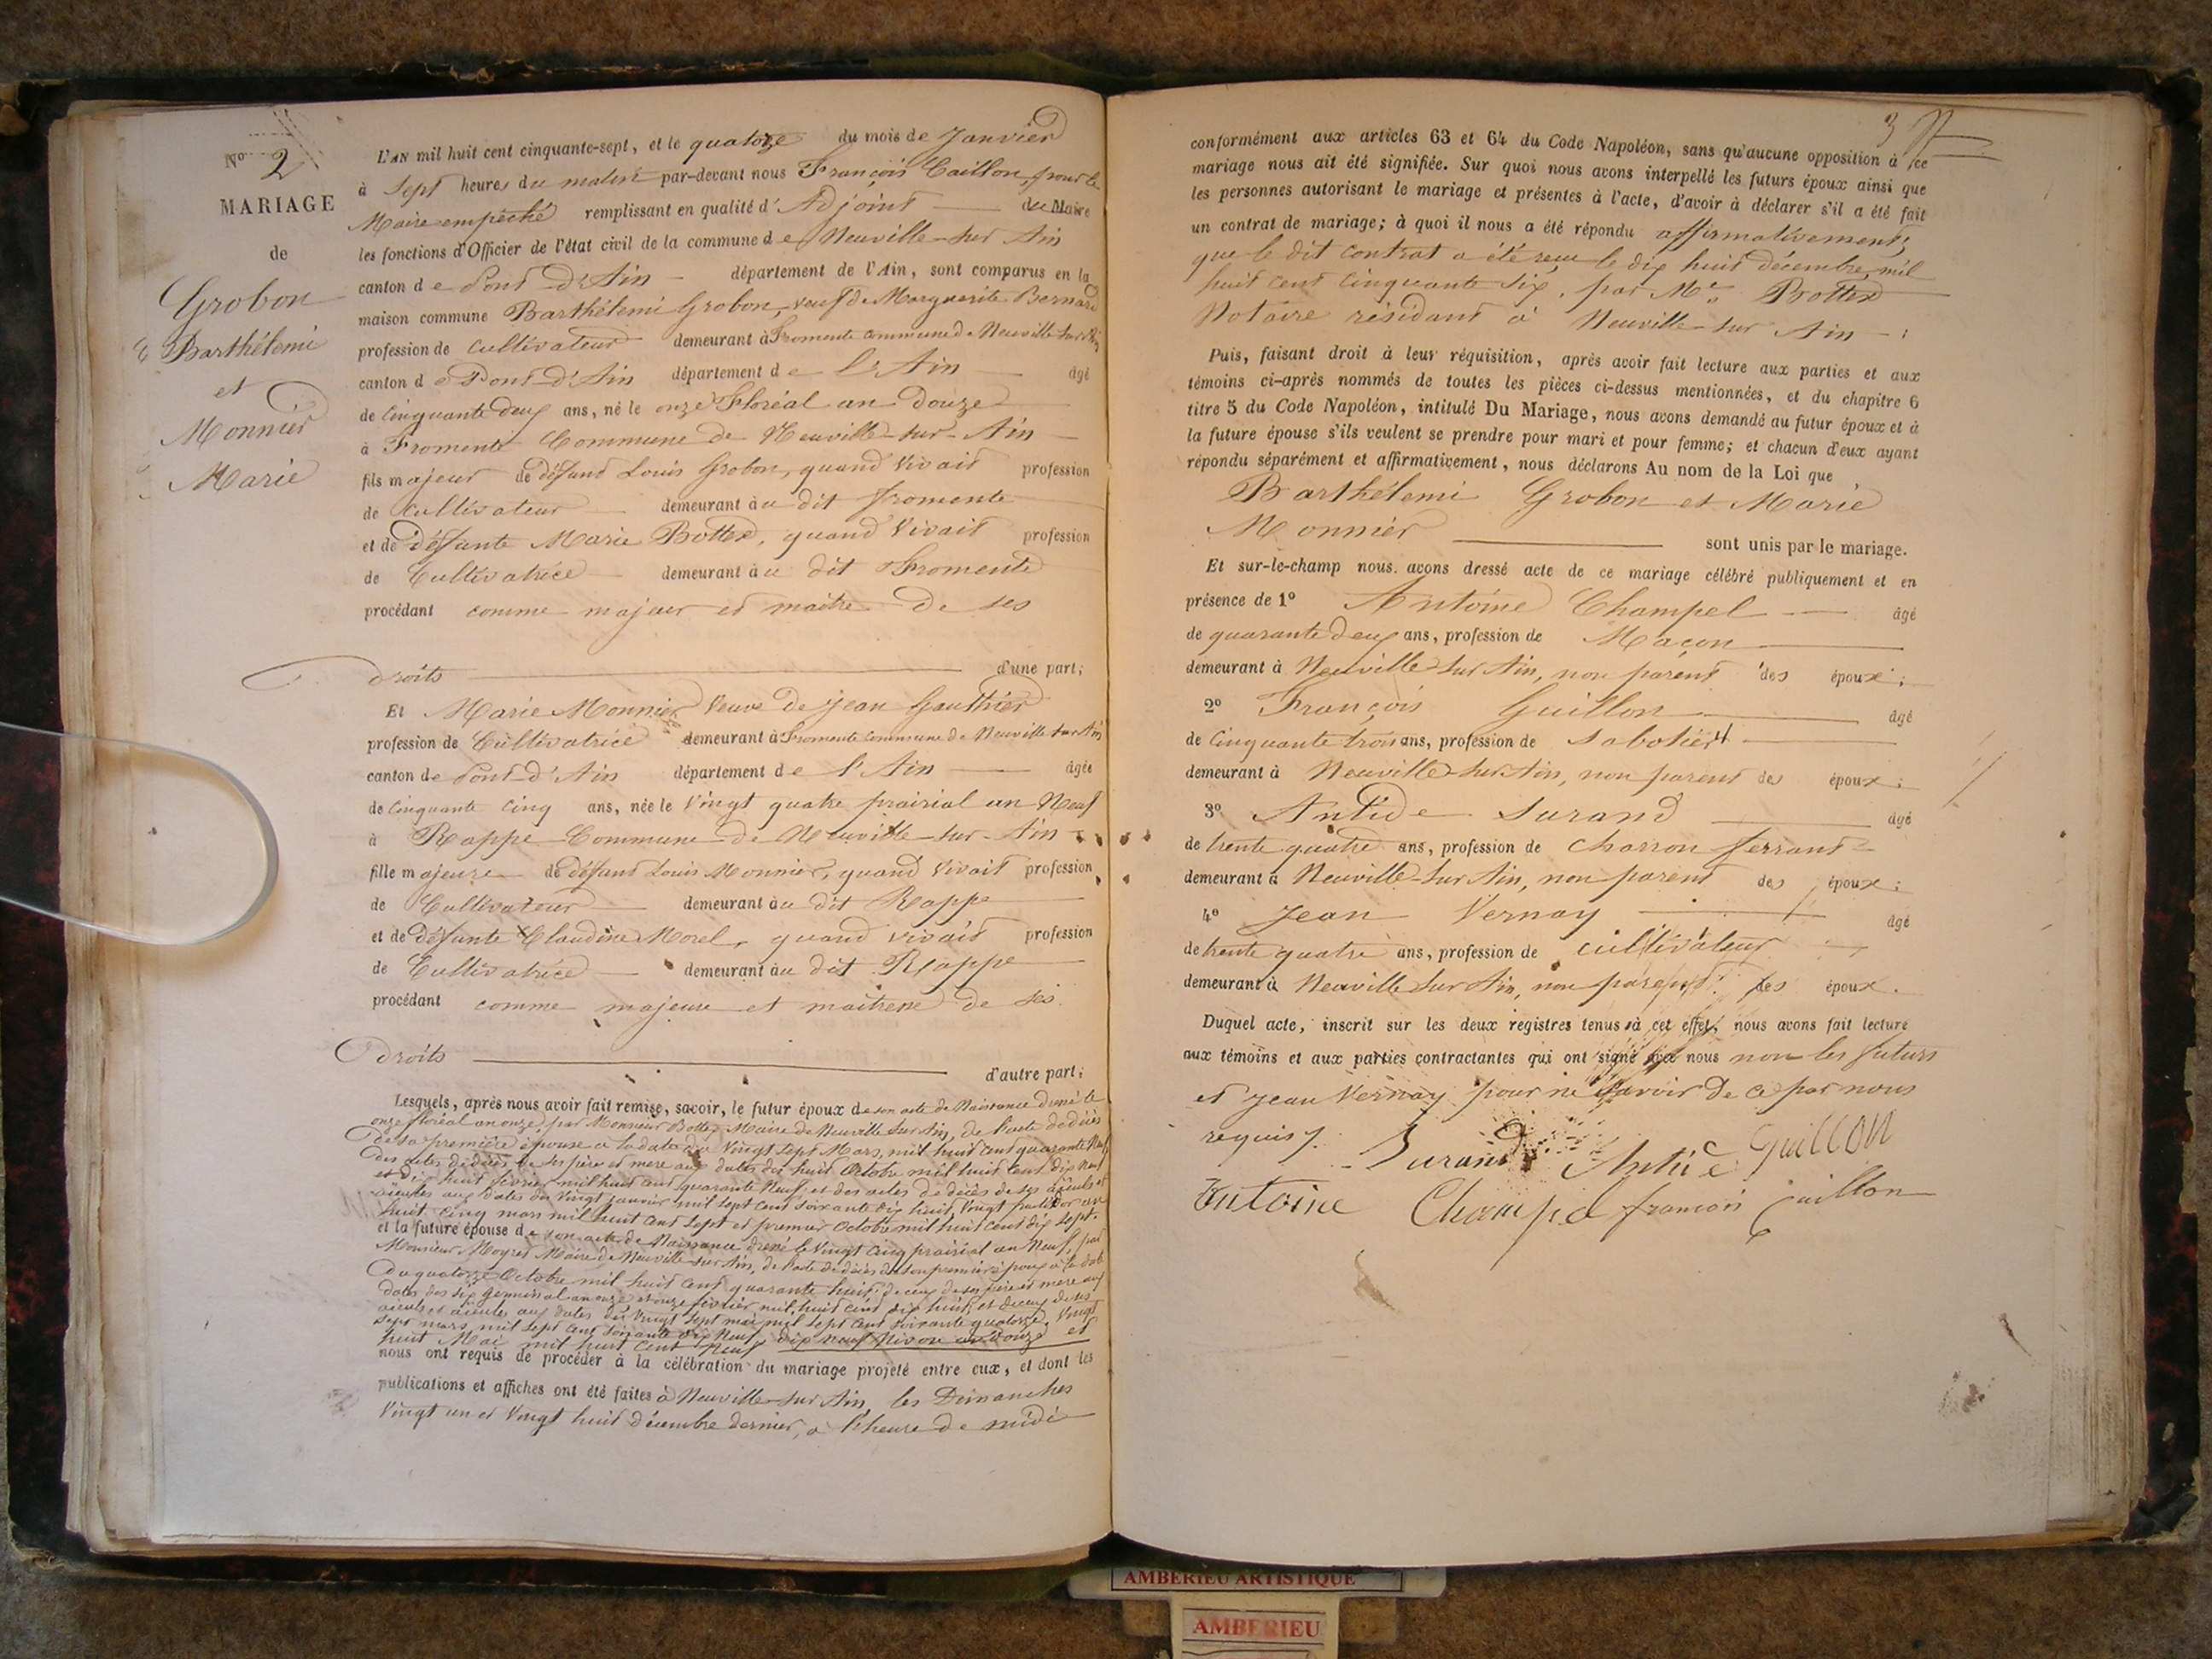 No 2
MARIAGE
de
Grobon
Barthélemi
et
Monnier
Marie
L'AN mil huit cent cinquante-sept, et le quatorze du mois de Janvier
à sept heures du matin par-devant nous François Caillon, pour le
Maire empêché remplissant en qualité d'Adjoint du Maire
les fonctions d'Officier de l'état civil de la commune de Neuville-sur Ain
canton de Pont d'Ain département de l'Ain, sont comparus en la
maison commune Barthélemi Grobon, veuf de Marguerite Bernard
profession de Cultivateur demeurant à Fromente commune de Neuville sur Ain
canton de Pont-d'Ain département de l'Ain âgé
de cinquante deux ans, né le onze Floréal an Douze
à Fromente Commune de Neuville-sur-Ain
fils majeur de défunt Louis Grobon, quand vivait profession
de Cultivateur demeurant au dit Fromente
et de défunte Marie Bottex, quand vivait profession
de Cultivatrice demeurant au dit Fromente
procédant comme majeur et maître de ses
droits d'une part;
Et Marie Monnier Veuve de Jean Gauthier
profession de Cultivatrice demeurant à Fromente commune de Neuville sur Ain
canton de Pont-d'Ain département de l'Ain âgée
de cinquante cinq ans, née le Vingt quatre prairial an Neuf
à Rappe Commune de Neuville-sur-Ain
fille majeure de défunt Louis Monnier, quand vivait profession
de Cultivateur demeurant au dit Rappe
et de défunte Claudine Morel, quand vivait profession
de Cultivatrice demeurant au dit Rappe
procédant comme majeure et maitresse de ses
droits d'autre part;
Lesquels, après nous avoir fait remise, savoir, le futur époux de son acte de Naissance dressé le
onze floréal an onze, par Monsieur Bottex Maire de Neuville sur Ain, de l'acte de décès
de sa première épouse a la date du Vingt sept Mars, mil huit cent quarante Neuf
des actes de décès de ses père et mere aux dates des huit Octobre mil huit cent dix neuf
et dix huit février mil huit cent quarante Neuf, et des actes de décès de ses aïeuls et
aïeules aux dates des Vingt janvier mil sept cent soixante dix huit, Vingt an
huit, cinq mars mil huit cent sept et premier Octobre mil huit cent dix sept.
et la future épouse de son acte de Naissance dressé le Vingt cinq prairial an Neuf, par
Monsieur Moyret Maire de Neuville sur Ain, de l'acte de décès de son premier époux à la date
du quatorze Octobre mil huit cent quarante huit, de ceux de ses père et mere aux
dates des six germinal an onze et onze février mil huit cent dix huit, et de ceux de ses
aïeuls et aïeules aux dates des Vingt sept mai mil sept cent soixante quatorze, Vingt
sept mars mil sept cent soixante dix Neuf, dix neuf Nivose an Douze et
huit Mai mil huit cent Neuf
nous ont requis de procéder à la célébration du mariage projeté entre eux, et dont les
publications et affiches ont été faites à Neuville-sur Ain, les Dimanches
Vingt un et Vingt huit Décembre dernier, à l'heure de midi
3
conformément aux articles 63 et 64 du Code Napoléon, sans qu'aucune opposition à ce
mariage nous ait été signifiée. Sur quoi nous avons interpellé les futurs époux ainsi que
les personnes autorisant le mariage et présentes à l'acte, d'avoir à déclarer s'il a été fait
un contrat de mariage; à quoi il nous a été répondu affirmativement;
que le dit contrat a été reçu le dix huit décembre mil
huit cent cinquante six, par Me Bottex
Notaire résidant à Neuville-sur Ain;
Puis, faisant droit à leur réquisition, après avoir fait lecture aux parties et aux
témoins ci-après nommés de toutes les pièces ci-dessus mentionnées, et du chapitre 6
titre 5 du Code Napoléon, intitulé Du Mariage, nous avons demandé au futur époux et à
la future épouse s'ils veulent se prendre pour mari et pour femme; et chacun d'eux ayant
répondu séparément et affirmativement, nous déclarons Au nom de la Loi que
Barthélemi Grobon et Marie
Monnier sont unis par le mariage.
Et sur-le-champ nous avons dressé acte de ce mariage célébré publiquement et en
présence de 1º Antoine Champel âgé
de quarante deux ans, profession de Maçon
demeurant à Neuville-sur Ain, non parent des époux;
2º François Guillon âgé
de Cinquante trois ans, profession de Sabotier
demeurant à Neuville-sur Ain, non parent des époux;
3º Antide Surand âgé
de trente quatre ans, profession de Charron ferrant
demeurant à Neuville-sur Ain, non parent des époux;
4º Jean Vernay âgé
de trente quatre ans, profession de cultivateur
demeurant à Neuville sur Ain, non parent des époux.
Duquel acte, inscrit sur les deux registres tenus à cet effet, nous avons fait lecture
aux témoins et aux parties contractantes qui ont signé avec nous non les futurs
et Jean Vernay pour ne savoir de ce par nous
requis.
Surand Antide Guillon
Antoine Champel françois Caillon
AMBERIEU ARTISTIQUE
AMBERIEU